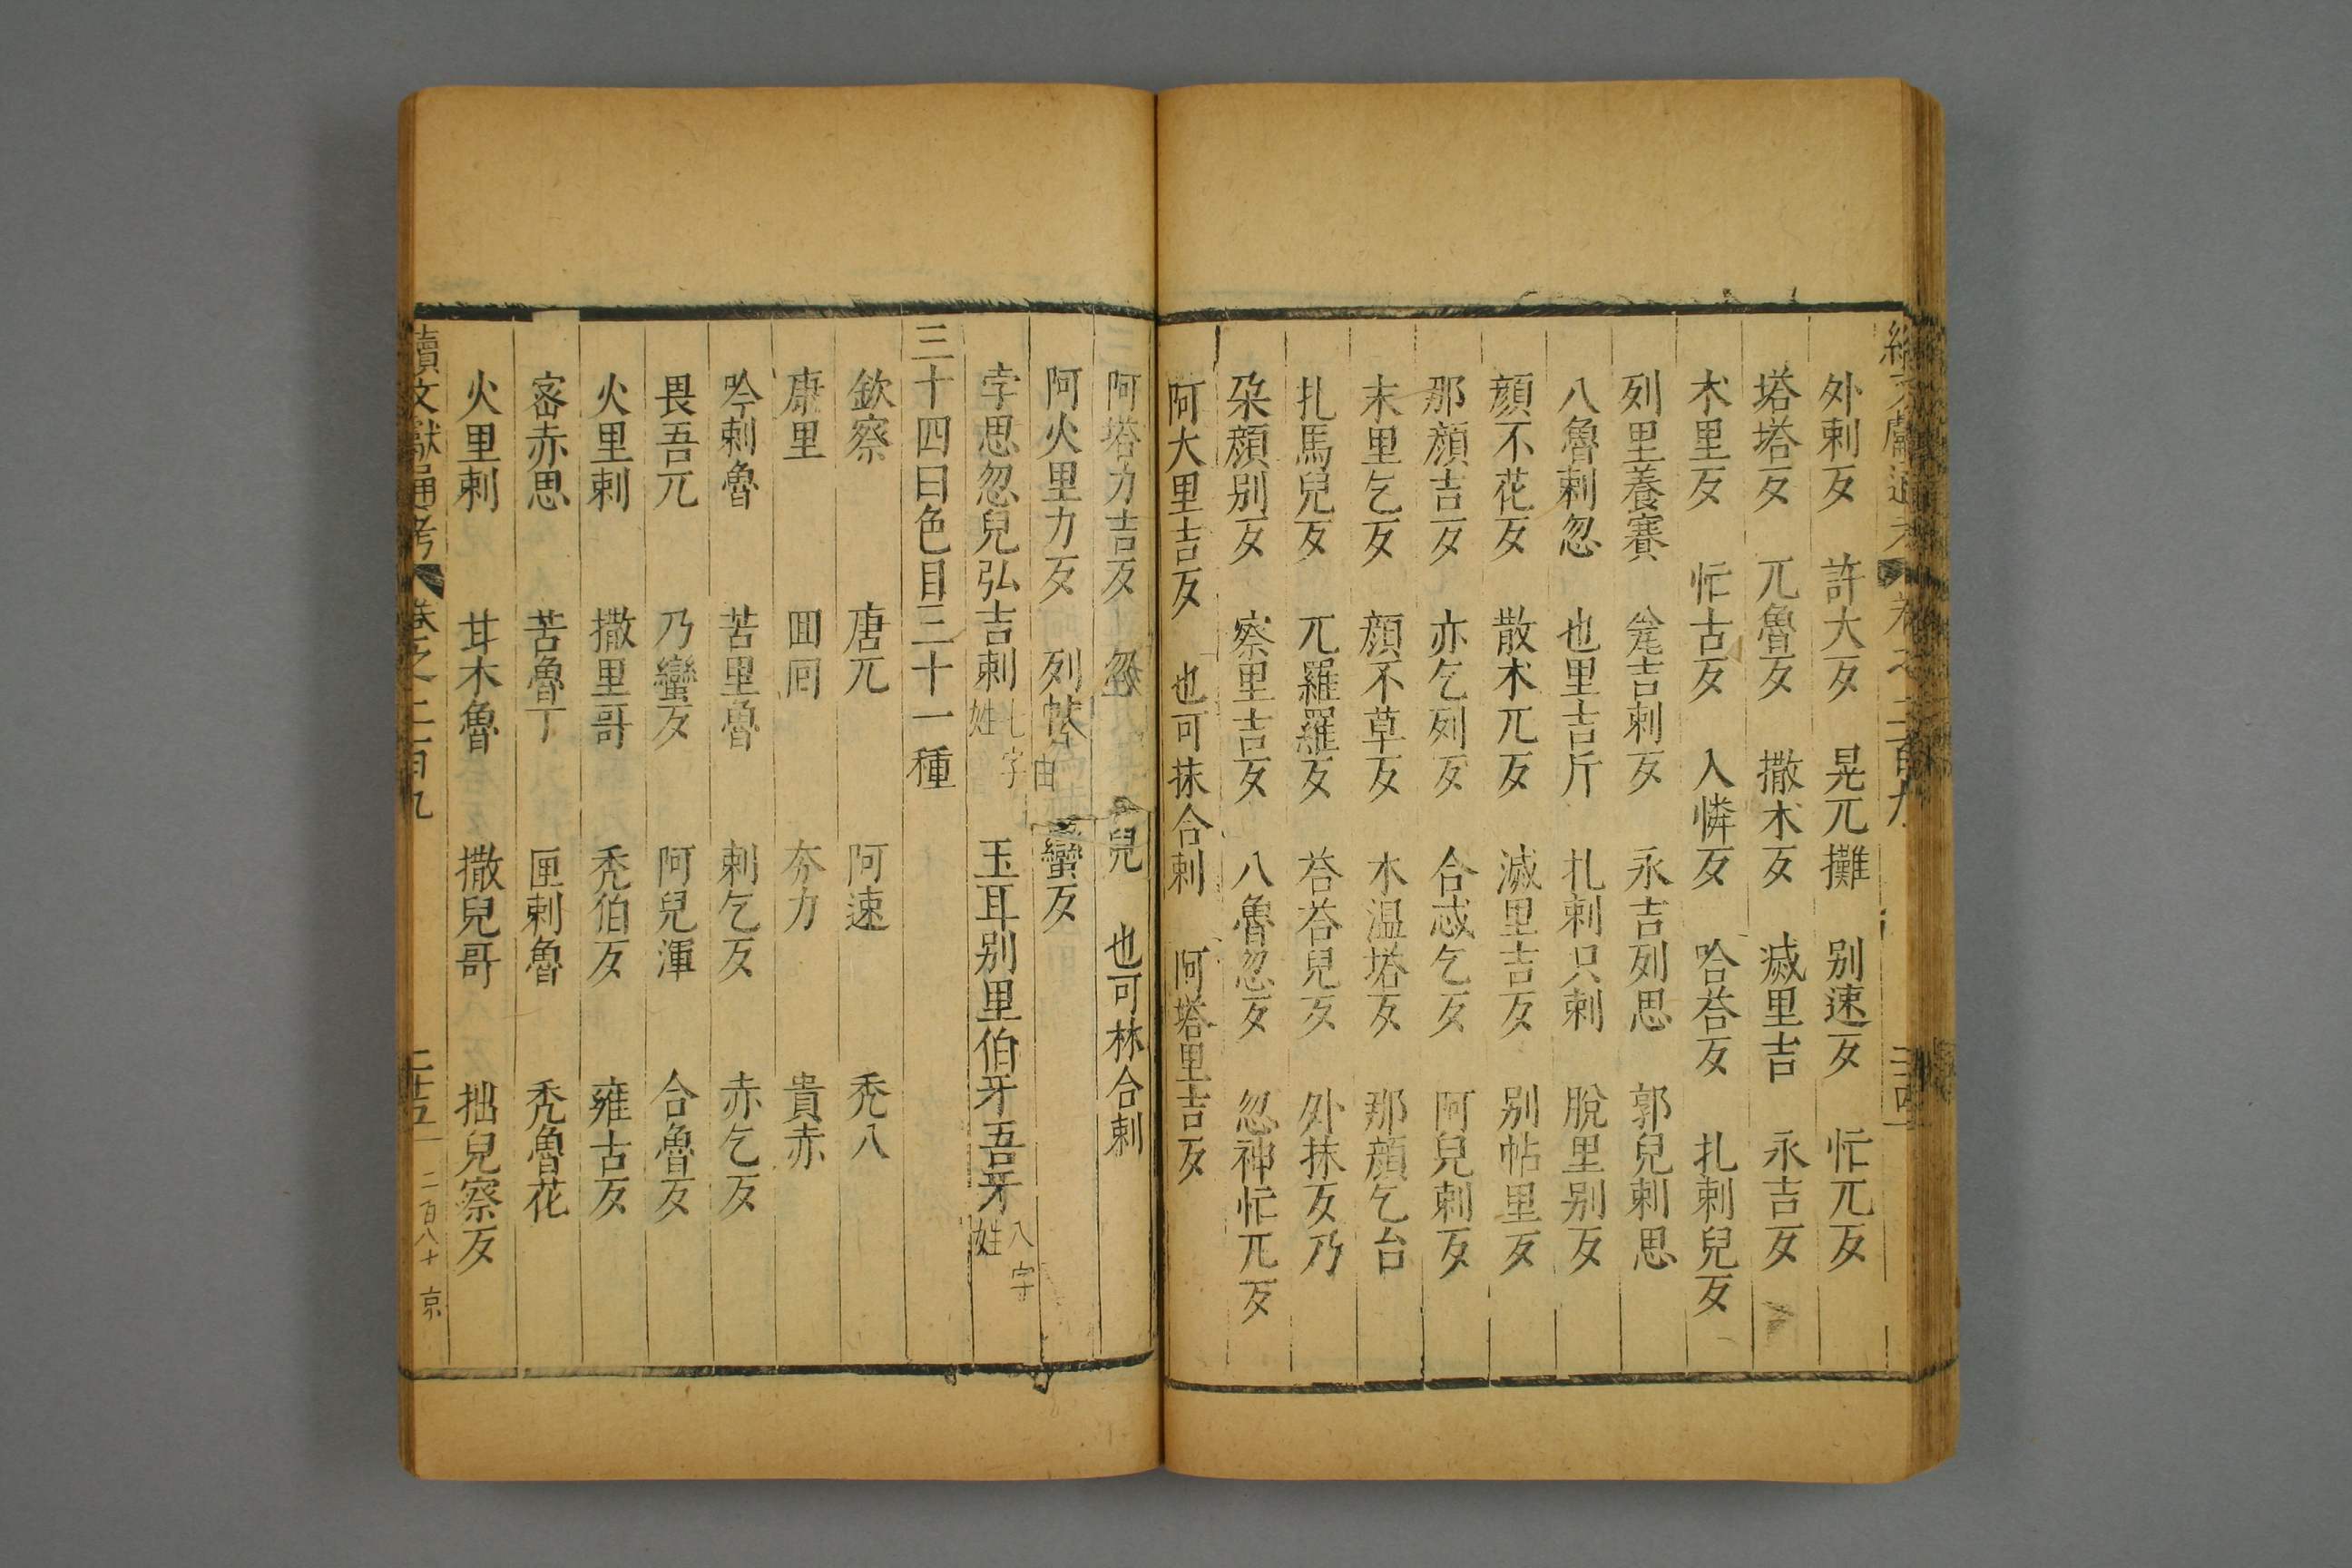 外剌歹 許大歹 晃兀攤 别速歹 忙兀歹
塔塔歹 兀魯歹 撒术歹 滅里吉 永吉歹
术里歹 忙古歹 入憐歹 哈荅歹 扎剌兒歹
列里養賽 吉剌歹 永吉列思 郭兒剌思
八魯剌忽 也里吉斤 扎剌只剌 脫里别歹
顔不花歹 散术兀歹 滅里吉歹 别帖里歹
那顔吉歹 亦乞列歹 合忒乞歹 阿兒剌歹
末里乞歹 顔不草歹 木温塔歹 那顔乞台
扎馬兒歹 兀羅羅歹 荅荅兒歹 外抹歹乃
朶顔别歹 察里吉歹 八魯忽歹 忽神忙兀歹
阿大里吉歹 也可抹合剌 阿塔里吉歹
阿塔力吉歹 忽 兒 也可林合剌
阿火里力歹 列帖 由 蠻歹
孛思忽兒弘吉剌 七字姓 玉耳别里伯牙吾牙 八字姓
三十四曰色目三十一種
欽察 唐兀 阿速 禿八
康里 囬囘 夯力 貴赤
哈剌魯 苦里魯 剌乞歹 赤乞歹
畏吾兀 乃蠻歹 阿兒渾 合魯歹
火里剌 撒里哥 禿伯歹 雍古歹
宻赤思 苦魯丁 匣剌魯 禿魯花
火里剌 甘木魯 撒兒哥 拙兒察歹
續文獻通考 卷之二百九 二十五 二百八十 京